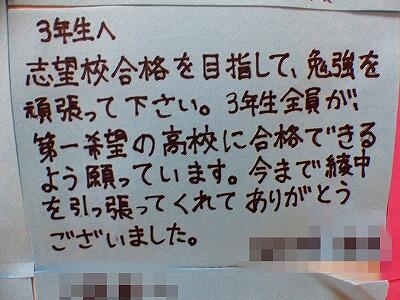 3年生へ
志望校合格を目指して、勉強を
頑張って下さい。3年生全員が、
第一希望の高校に合格できる
よう願っています。今まで綾中
を引っ張ってくれてありがとう
ございました。